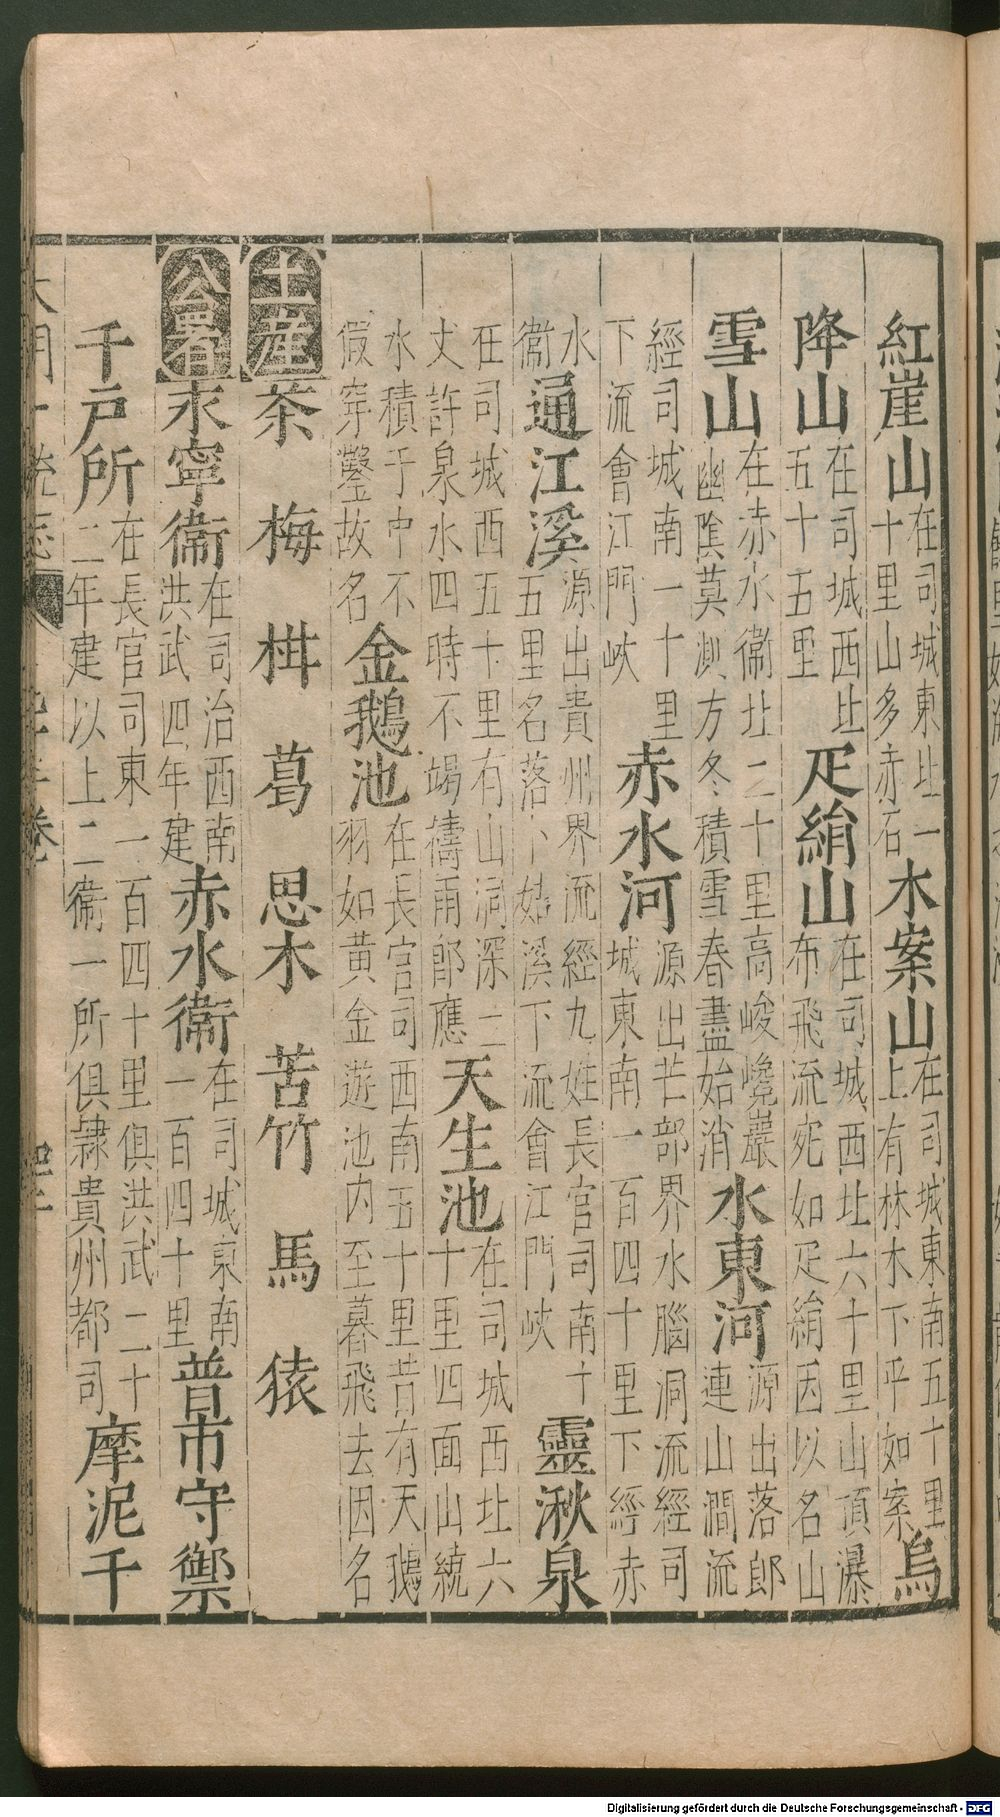 紅崖山在司城東北一十里山多赤石木案山在司城東南五十里上有林木下平如案烏
降山在司城西北五十五里疋絹山在司城西北六十里山頂瀑布飛流宛如疋絹因以名山
雪山在赤水衞北二十里高峻巉巖幽陰莫測方冬積雪春盡始消水東河源出落郎連山澗流
經司城南一十里下流會江門峽赤水河源出芒部界水腦洞流經司城東南一百四十里下經赤
水衞通江溪源出貴州界流經九姓長官司南十五里名落卜姑溪下流會江門峽靈湫泉
在司城西五十里有山洞深二丈許泉水四時不竭禱雨郎應天生池在司城西北六十里四面山繞
水積于中不假穿鑿故名金鵝池在長官司西南五十里昔有天鵝羽如黃金遊池内至暮飛去因名
土產茶 梅 葛 思木 苦竹 馬 猿
公署永寧衞在司治西南洪武四年建赤水衞在司城東南一百四十里普市守禦
千戶所在長官司東一百四十里俱洪武二十二年建以上二衞一所俱隷貴州都司摩泥千
Digitalisierung gefördert durch die Deutsche Forschungsgemeinschaft - DFG